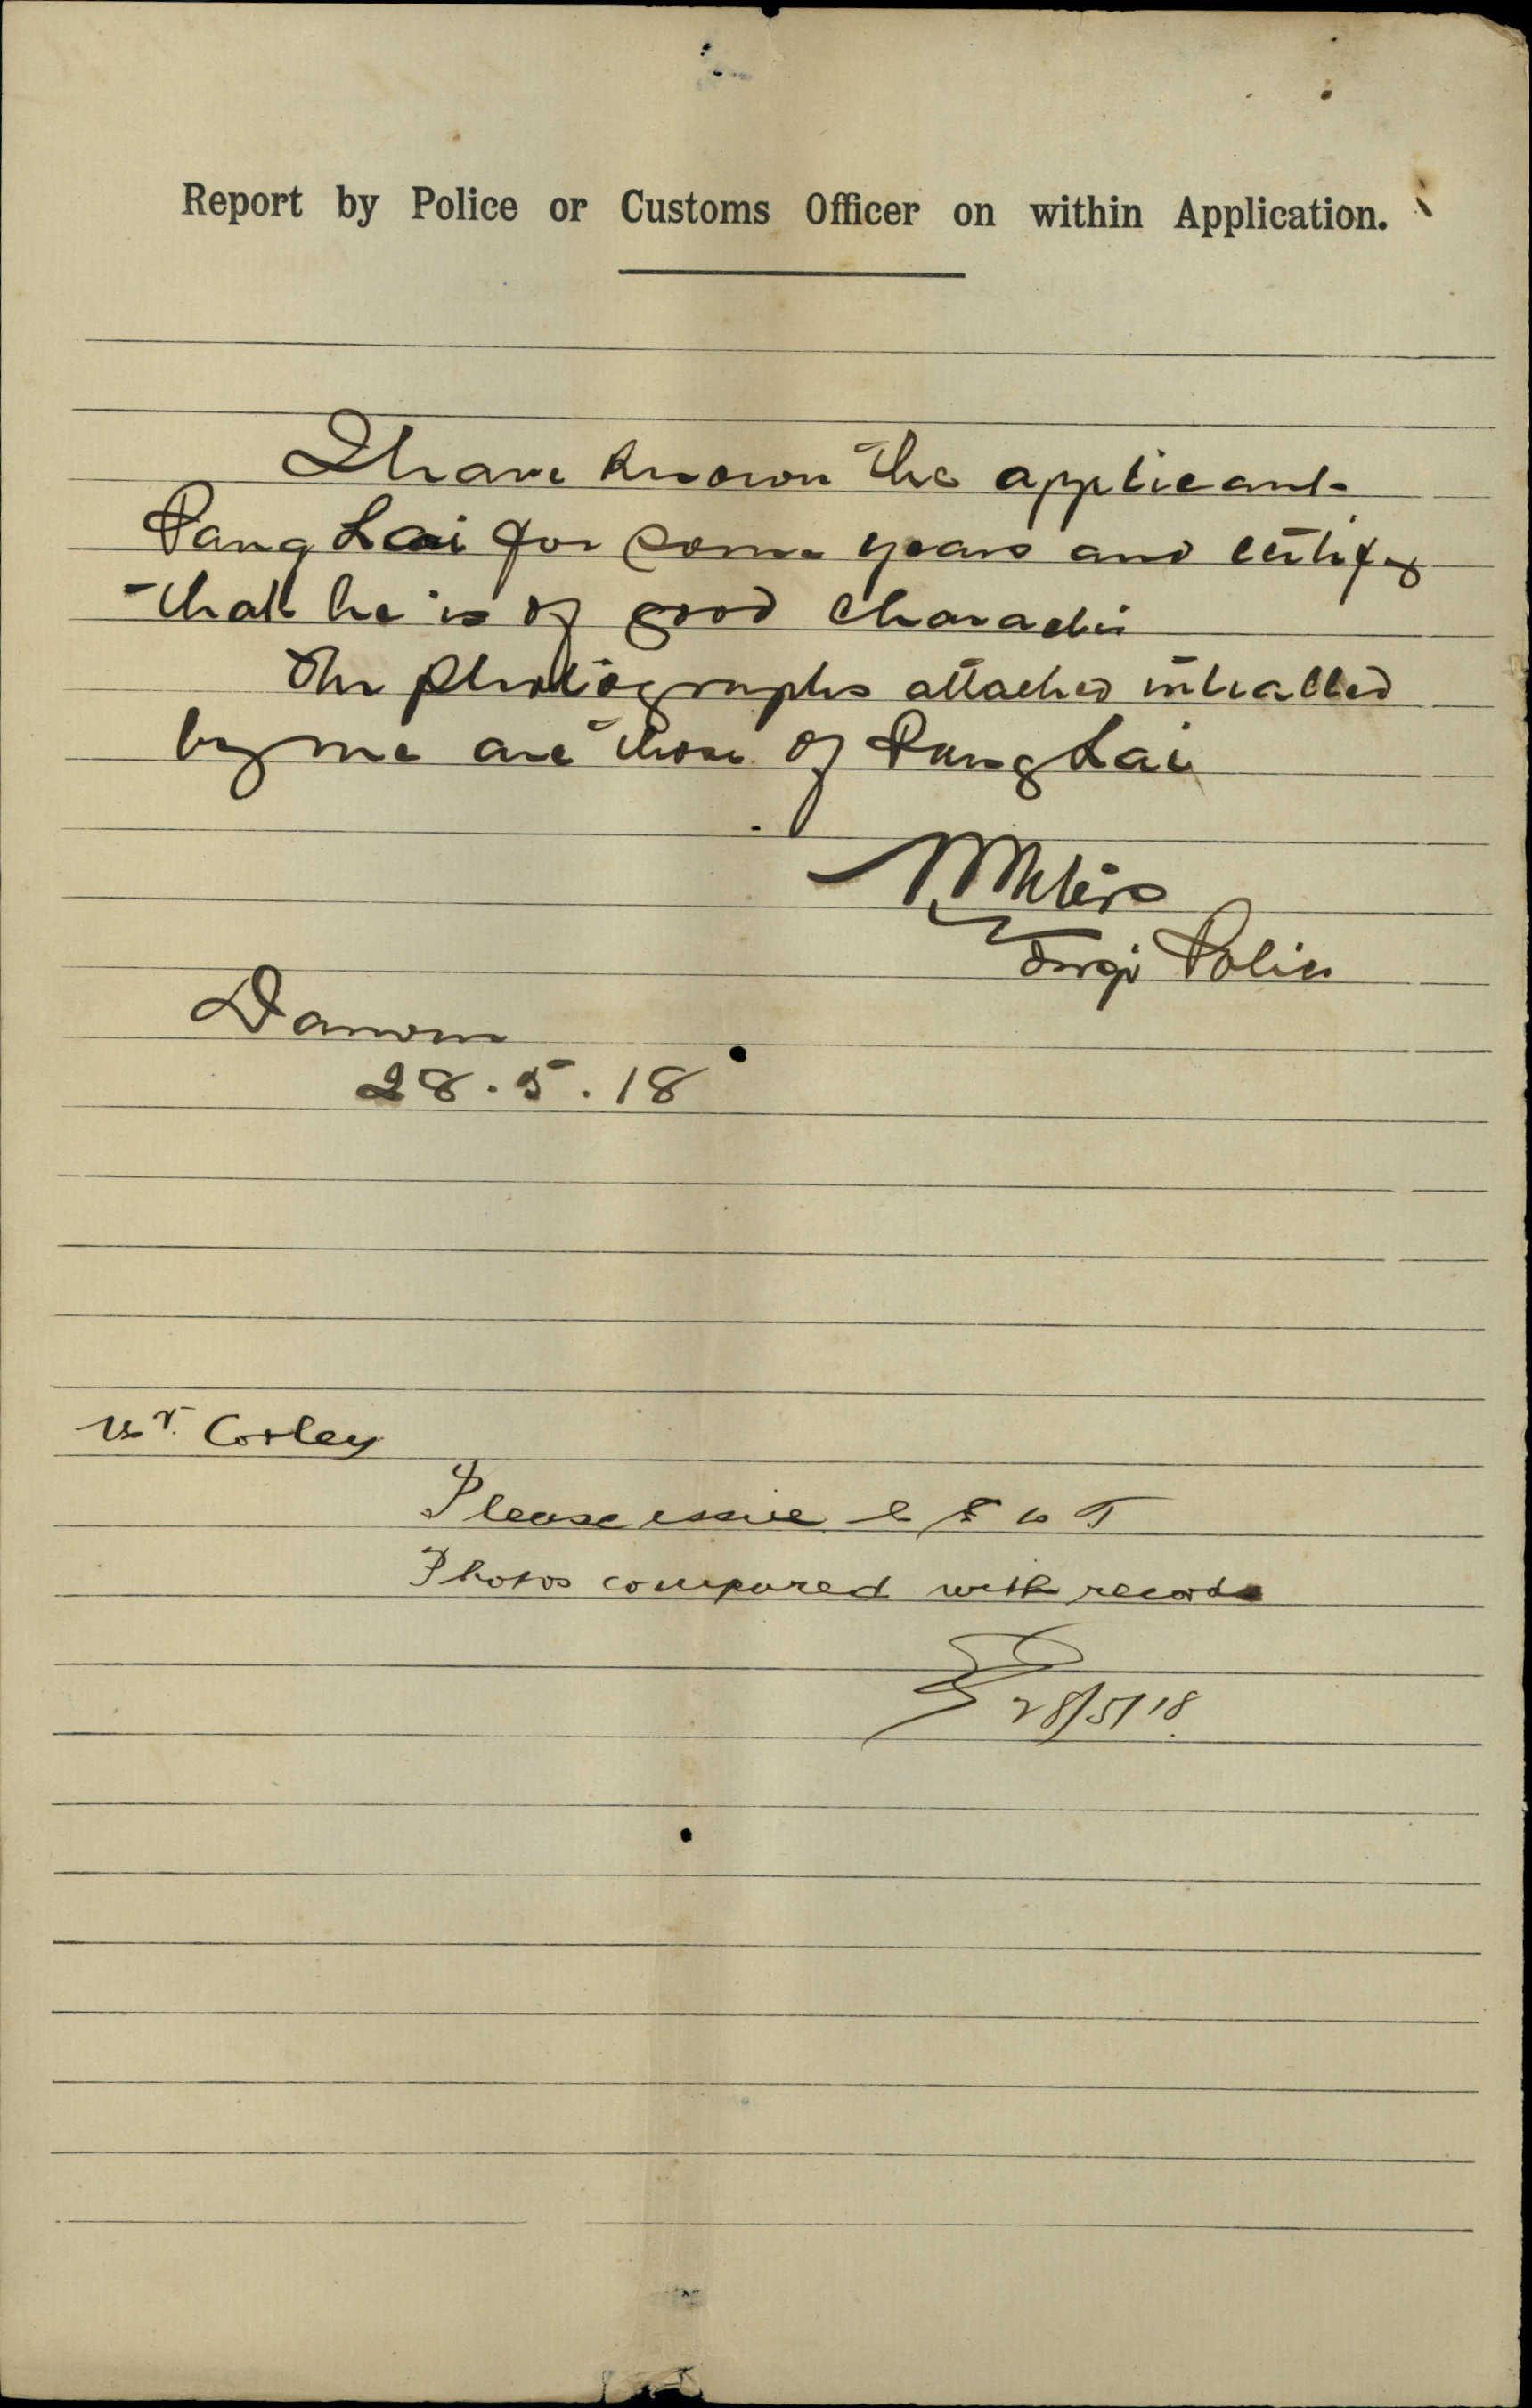 Report by Police or Customs Officer on within Application.
I have known the applicant
Pang Lai for some years and certify
that he is of good character
The photographs attached initialled
by me are those of Pang Lai
Sergt Police
Darwin
28.5.18
Mr. Corley
Please issue C E D T
Photos compared with records
28/5/18.